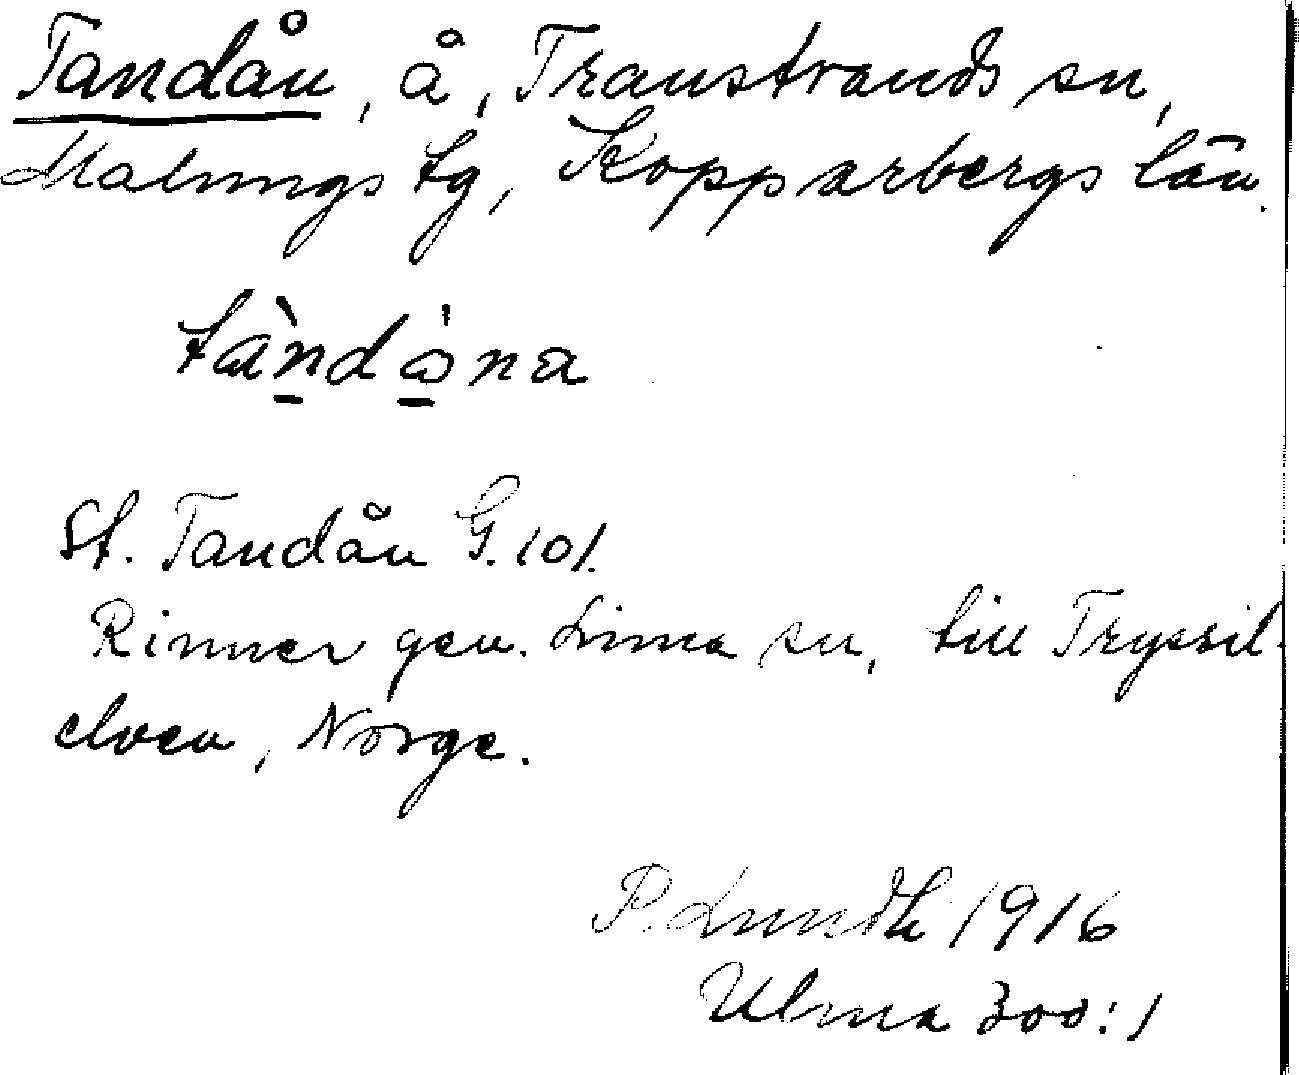 Tandån, å, Transtrands sn,
Malungs tg, Kopparbergs län.
tàndå̀na
St. Tandån G. 101.
Rinner gen. Lima sn, till Trysil-
elven, Norge.
P. Lundh 1916
Ulma 300:1